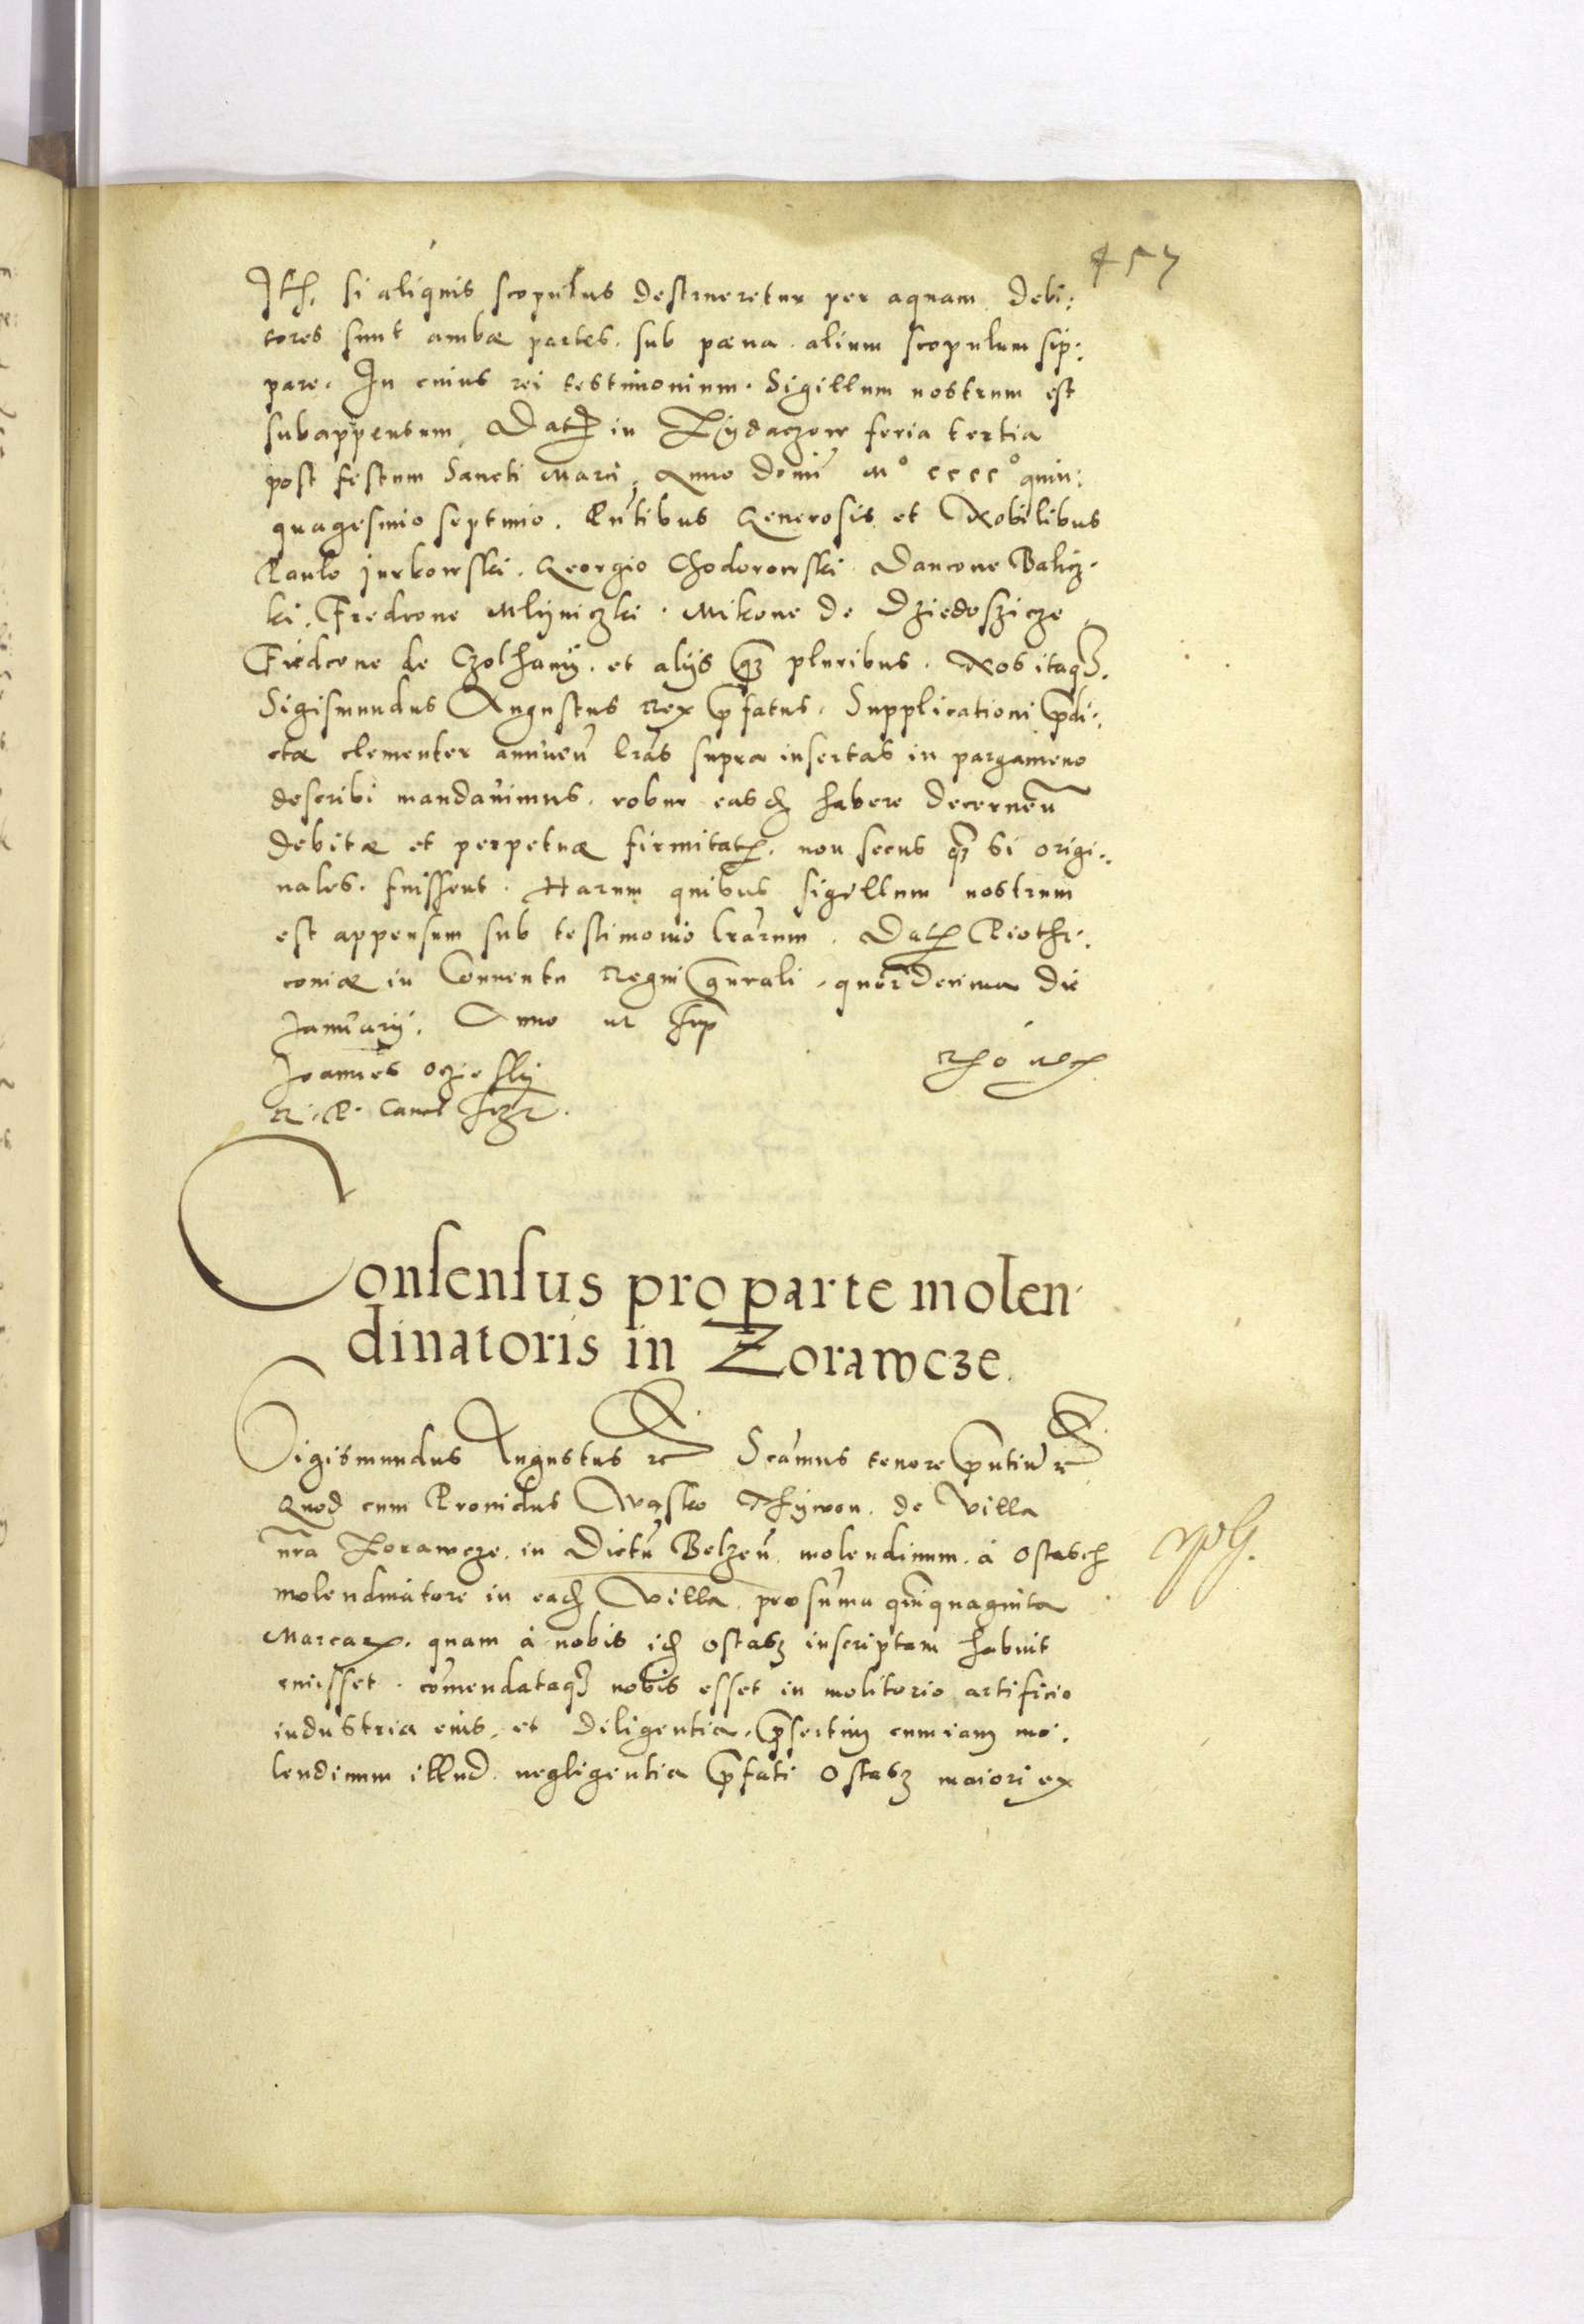 457
Itē. si aliquis scopulus destrueretur per aquam. Debi:
tores sunt ambæ partes. sub pæna. alium scopulum sip:
pare. In cuius rei testimonium. Sigillum nostrum est
subappensum. Dat̄ in Zydaczow feria tertia
post festum Sancti Marci, Anno domi᷑ Mº ccccº quin:
quagesimo septimo. Pn̄tibus Generosis et Nobilibus
Paulo Jurkowski. Georgio Chodorowski. Dancone Balicz:
ki. Fredrone Mlyniczki. Mikone de Dziedoszicze
Fiedcone de Czolhany. et alÿs qz pluribus. Nos itaqꝫ.
Sigismundus Augustus Rex p̄fatus. Supplicationi p̄di:
ctæ clementer annuen̄ l̄ras supra insertas in pargameno
describi mandavimus. robur easđ habere decernen̄
debitæ et perpetuæ firmitat̄. non secus qz si origi:
nales. fuissent. Harum quibus sigillum nostrum
est appensum sub testimonio l̄rarum. Dat̄ Piothr:
coniæ in Conventu Regni gn̄rali, quar decima die
Januarÿ. Anno ut sup̄
Joannes Oczieski
R. P. Cancl
Consensus pro parte molen
dinatoris in Zorawcze.
Sigismundus Augustus rc Scimus tenore p̄ntiū rc
Quod cum Providus Wasko Thywon. de Villa
nr̄a Zorawcze. in Dictū Belzen̄. molendinum. á Ostasch
molendinatore in eađ Villa. pro summa quinquaginta
Marcar̄. quam á nobis iđ Ostasz inscriptam habuit
emisset. commendataqꝫ nobis esset in molitorio artificio
industria eius, et diligentia, p̄sertim cum iam mo.
lendinum illud. negligentia p̄fati Ostasz maiori ex